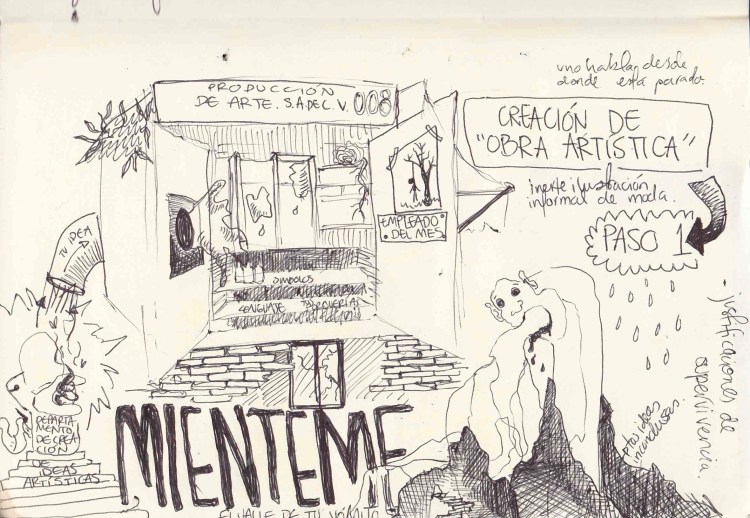 uno habla desde
donde está parado.
PRODUCCIÓN
DE ARTE. S.A DE C.V. 008
CREACIÓN DE
"OBRA ARTÍSTICA"
inserte ilustración
informal de moda.
PASO 1
EMPLEADO
DEL MES
TU IDEA
SIMBOLOS
LENGUAJE
justificaciones de
supervivencia.
DEPARTA
MENTO
DE CREA
CIÓN
DE
IDEAS
ARTÍSTICAS
MIENTEME
EL VALLE DE TU VÓMITO
ptas ideas
inconclusas.